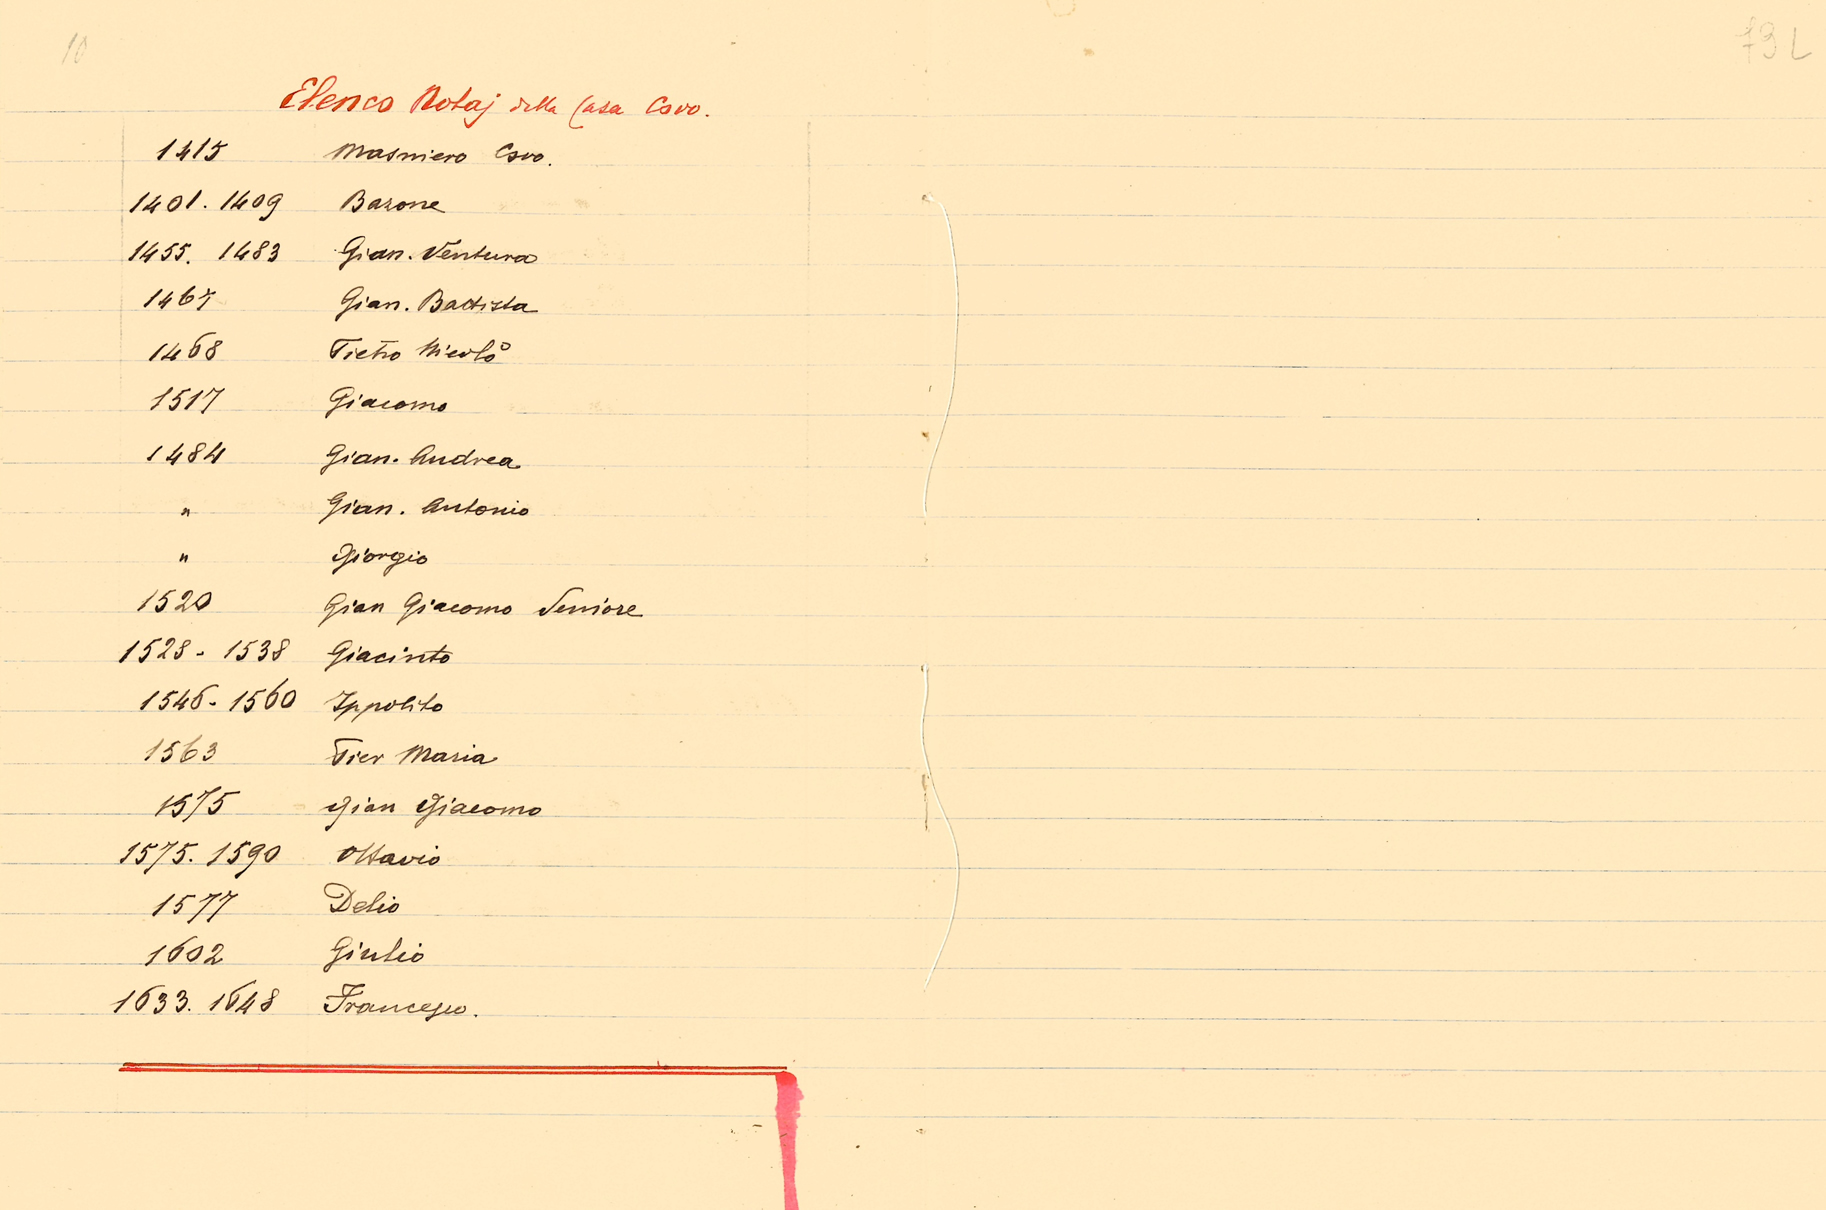 10
Elenco Notaj della Casa Covo.
1415 Masniero Covo.
1401. 1409 Barone
1455. 1483 Gian. Ventura
1467 Gian. Battista
1468 Pietro Nicolò
1517 Giacomo
1484 Gian. Andrea
" Gian. Antonio
" Giorgio
1520 Gian Giacomo Seniore
1528 - 1538 Giacinto
1546 - 1560 Ippolito
1563 Pier Maria
1575 Gian Giacomo
1575. 1590 Ottavio
1577 Delio
1602 Giulio
1633. 1648 Francesco.